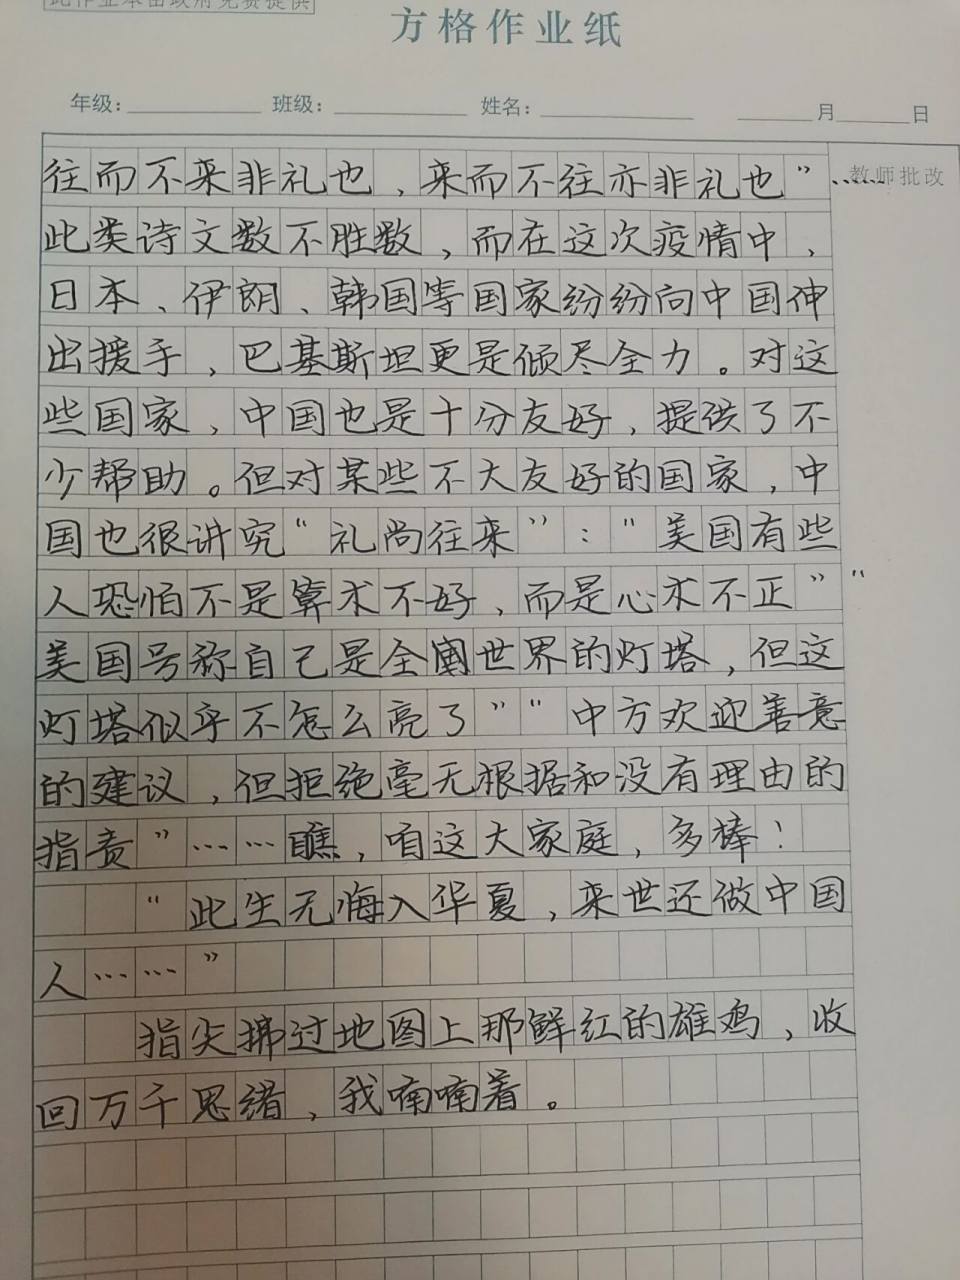 此作业本由政府免费提供
方格作业纸
年级： 班级： 姓名： 月 日
教师批改
往而不来非礼也，来而不往亦非礼也”……
此类诗文数不胜数，而在这次疫情中，
日本、伊朗、韩国等国家纷纷向中国伸
出援手，巴基斯坦更是倾尽全力。对这
些国家，中国也是十分友好，提供了不
少帮助。但对某些不大友好的国家，中
国也很讲究“礼尚往来”：“美国有些
人恐怕不是算术不好，而是心术不正”“
美国号称自己是全世界的灯塔，但这
灯塔似乎不怎么亮了”“中方欢迎善意
的建议，但拒绝毫无根据和没有理由的
指责”……瞧，咱这大家庭，多棒！
“此生无悔入华夏，来世还做中国
人……”
指尖拂过地图上那鲜红的雄鸡，收
回万千思绪，我喃喃着。